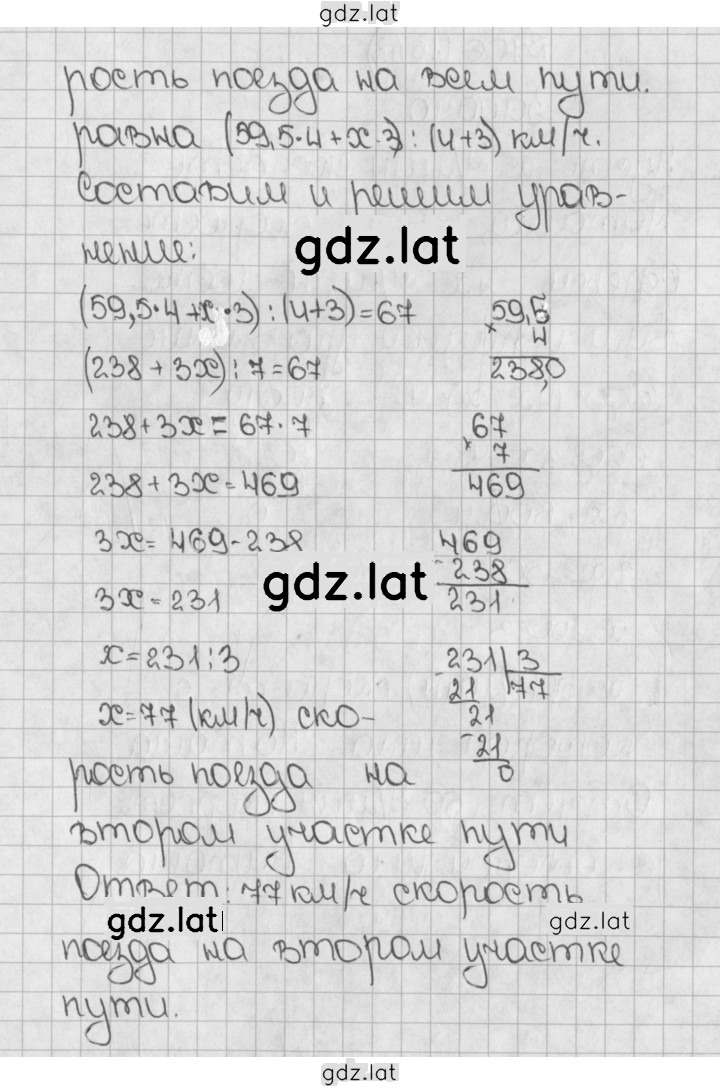 gdz.lat
рость поезда на всем пути.
равна (59,5·4+х·3) : (4+3) км/ч.
Составим и решим урав-
нение:
gdz.lat
(59,5·4+х·3) : (4+3)=67
59,5
× 4
238,0
(238 + 3х) : 7=67
238+3х = 67·7
67
× 7
469
238+3х=469
3х=469-238
469
- 238
231
gdz.lat
3х=231
х=231:3
- 231 3
21 77
21
-21
0
х=77 (км/ч) ско-
рость поезда на
втором участке пути
Ответ: 77 км/ч скорость
gdz.lat gdz.lat
поезда на втором участке
пути.
gdz.lat